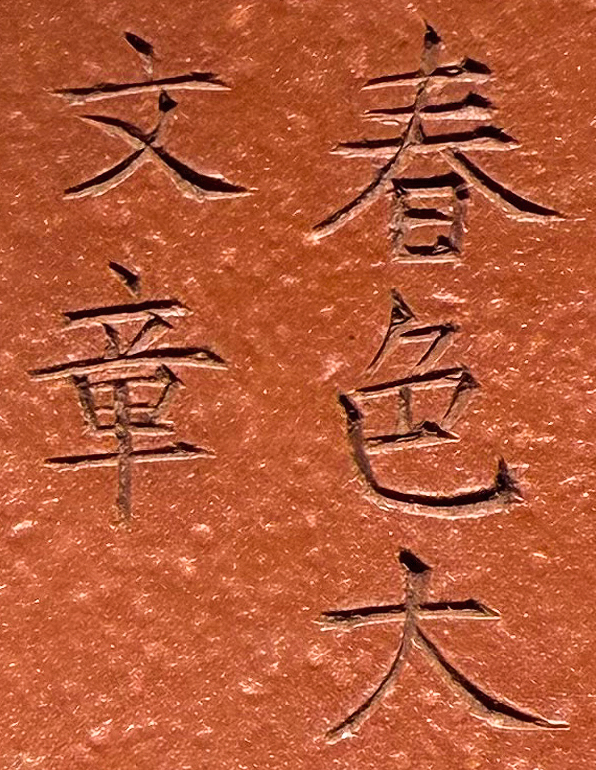 春色大
文章